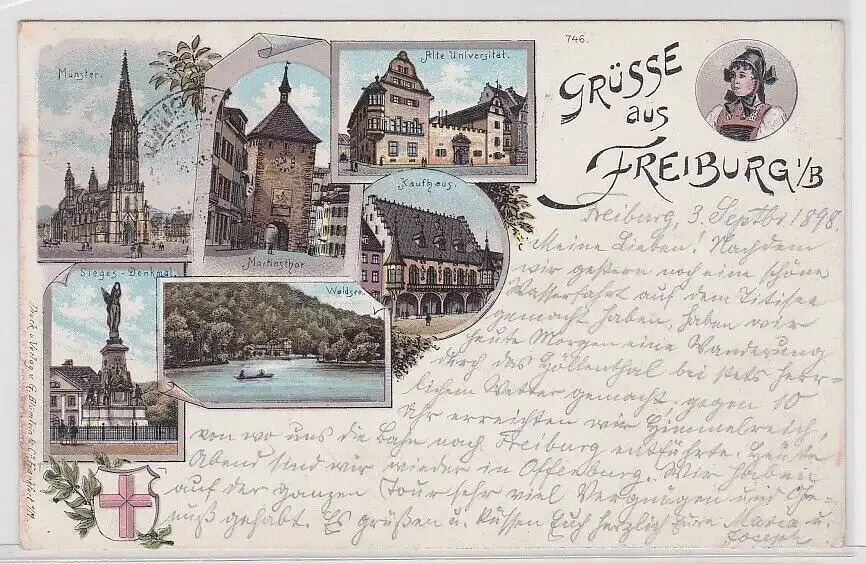 746.
Münster.
Alte Universität.
GRÜSSE
aus
FREIBURG i/B
Kaufhaus.
Martinsthor
Sieges-Denkmal.
Waldsee.
Freiburg, 3. Septbr 1898.
Meine Lieben! Nachdem
wir gestern noch eine schöne
Wasserfahrt auf dem Titisee
gemacht haben, haben wir
heute Morgen eine Wanderung
durch das Höllenthal bei stets herr-
lichem Wetter gemacht. gegen 10
Uhr erreichten wir Himmelreich,
von wo uns die Bahn nach Freiburg entführte. Heute
Abend sind wir wieder in Offenburg. Wir haben
auf der ganzen Tour sehr viel Vergnügen und Ge-
nuß gehabt. Es grüßen u. küssen Euch herzlich Eure Maria u.
Joseph
Druck u. Verlag v.